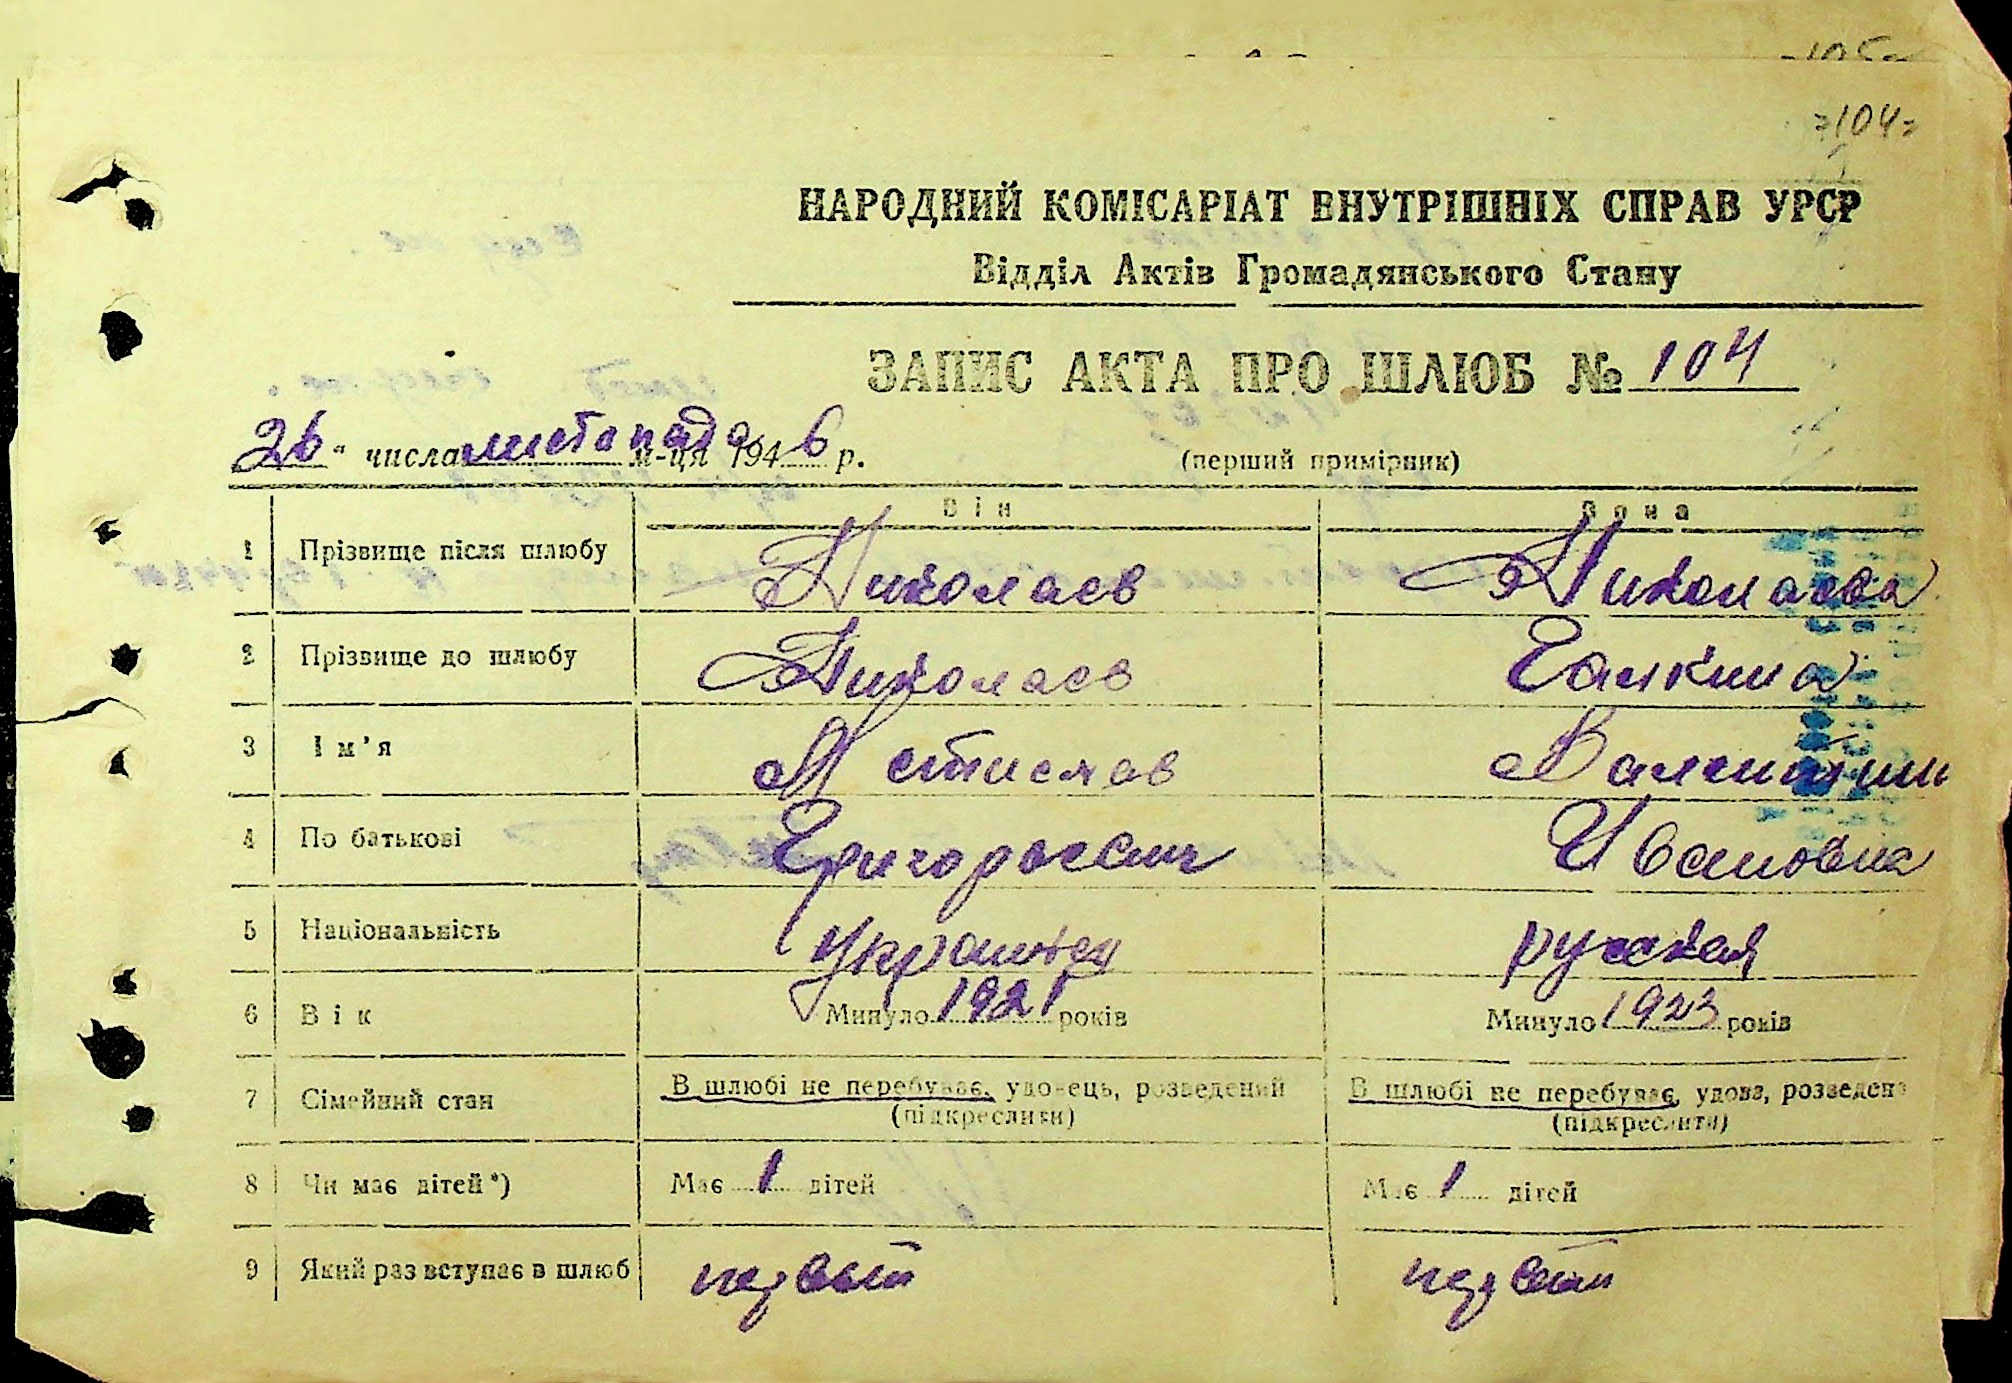 =104=
НАРОДНИЙ КОМІСАРІАТ ВНУТРІШНІХ СПРАВ УРСР
Відділ Актів Громадянського Стану
ЗАПИС АКТА ПРО ШЛЮБ № 104
26 " числа листопада м-ця 1946 р. (перший примірник)
Він Вона
1 Прізвище після шлюбу Николаев Николаева
2 Прізвище до шлюбу Николаев Галкина
3 Ім'я Мстислав Валентина
4 По батькові Григорьевич Ивановна
5 Національність украинец русская
6 Вік Минуло 1921 років Минуло 1923 років
7 Сімейний стан В шлюбі не перебуває, удовець, розведений В шлюбі не перебуває, удова, розведена
(підкреслити) (підкреслити)
8 Чи має дітей*) Має 1 дітей Має 1 дітей
9 Який раз вступає в шлюб первый первый